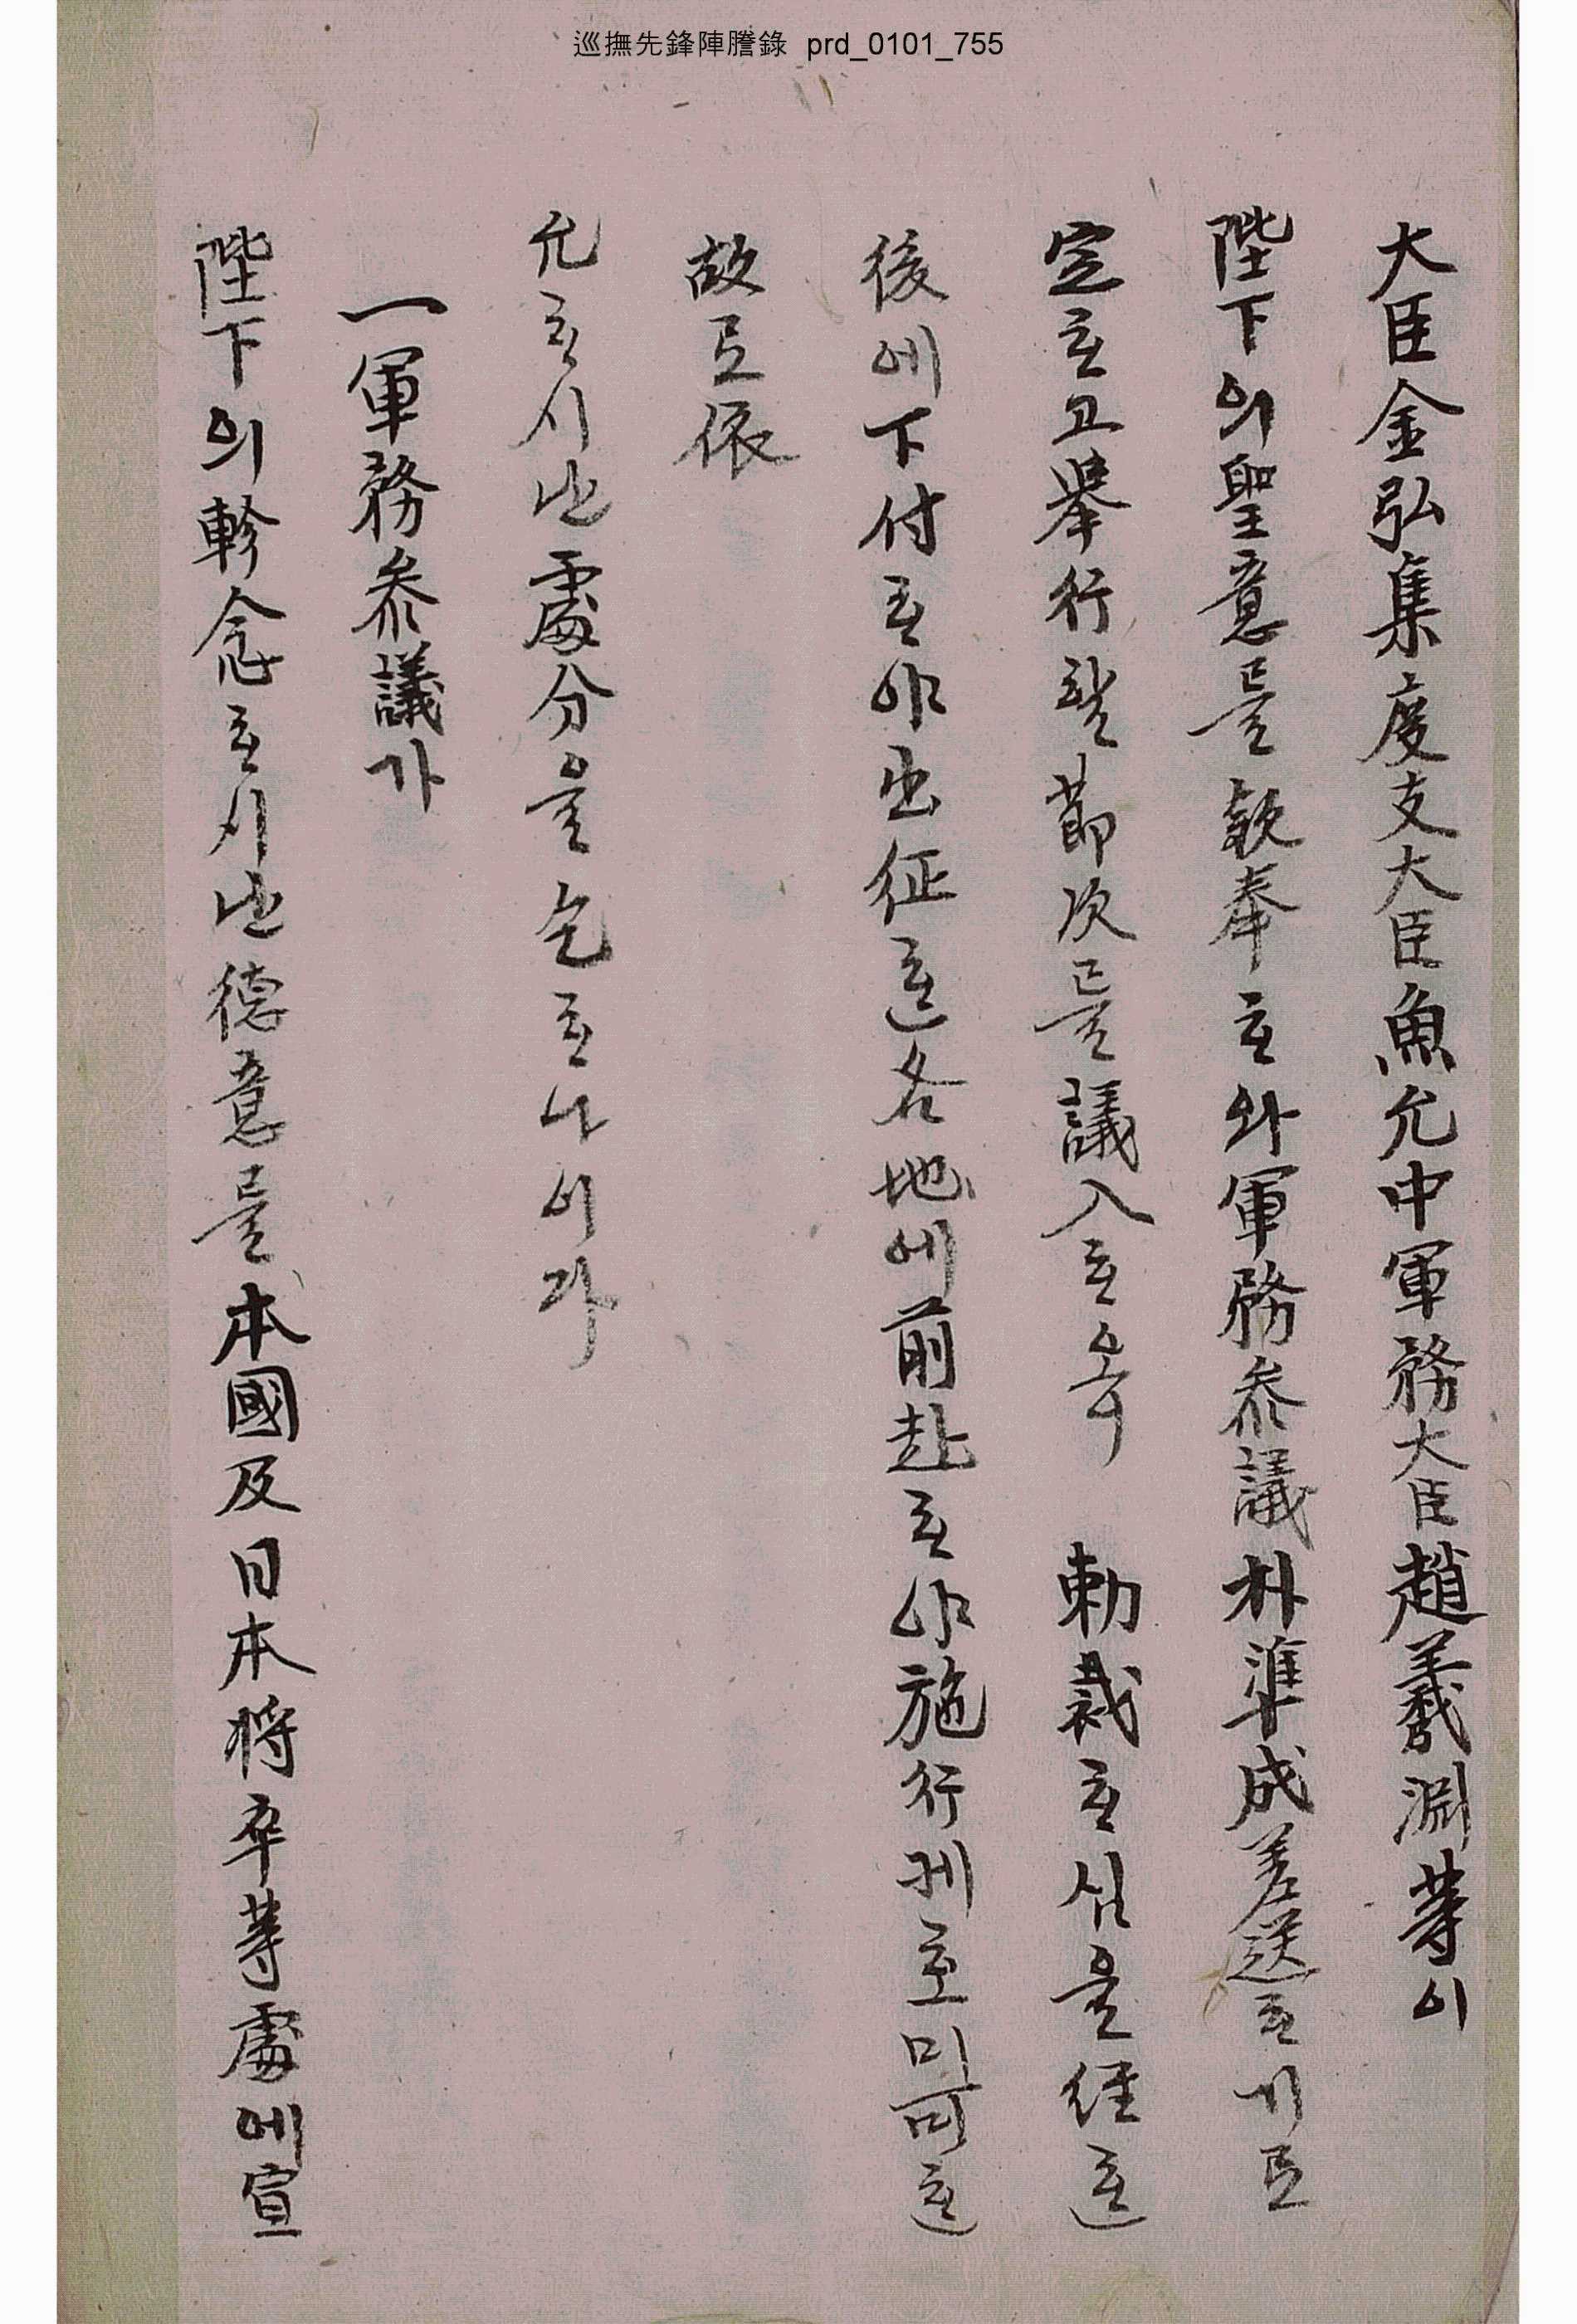 巡撫先鋒陣謄錄 prd_0101_755
大臣金弘集度支大臣魚允中軍務大臣趙羲淵等이
陛下의聖意를欽奉ᄒᆞ와軍務参議朴準成差送ᄒᆞ기로
定ᄒᆞ고擧行ᄒᆞᆯ節次를議入ᄒᆞ온즉 勅裁ᄒᆞ심을經ᄒᆞᆫ
後에下付ᄒᆞ야出征ᄒᆞᆫ各地에前赴ᄒᆞ야施行케ᄒᆞ미可ᄒᆞᆫ
故로依
允ᄒᆞ시ᄂᆞᆫ處分을乞ᄒᆞ나이다
一軍務参議가
陛下의軫念ᄒᆞ시ᄂᆞᆫ德意를本國及日本将卒等處에宣